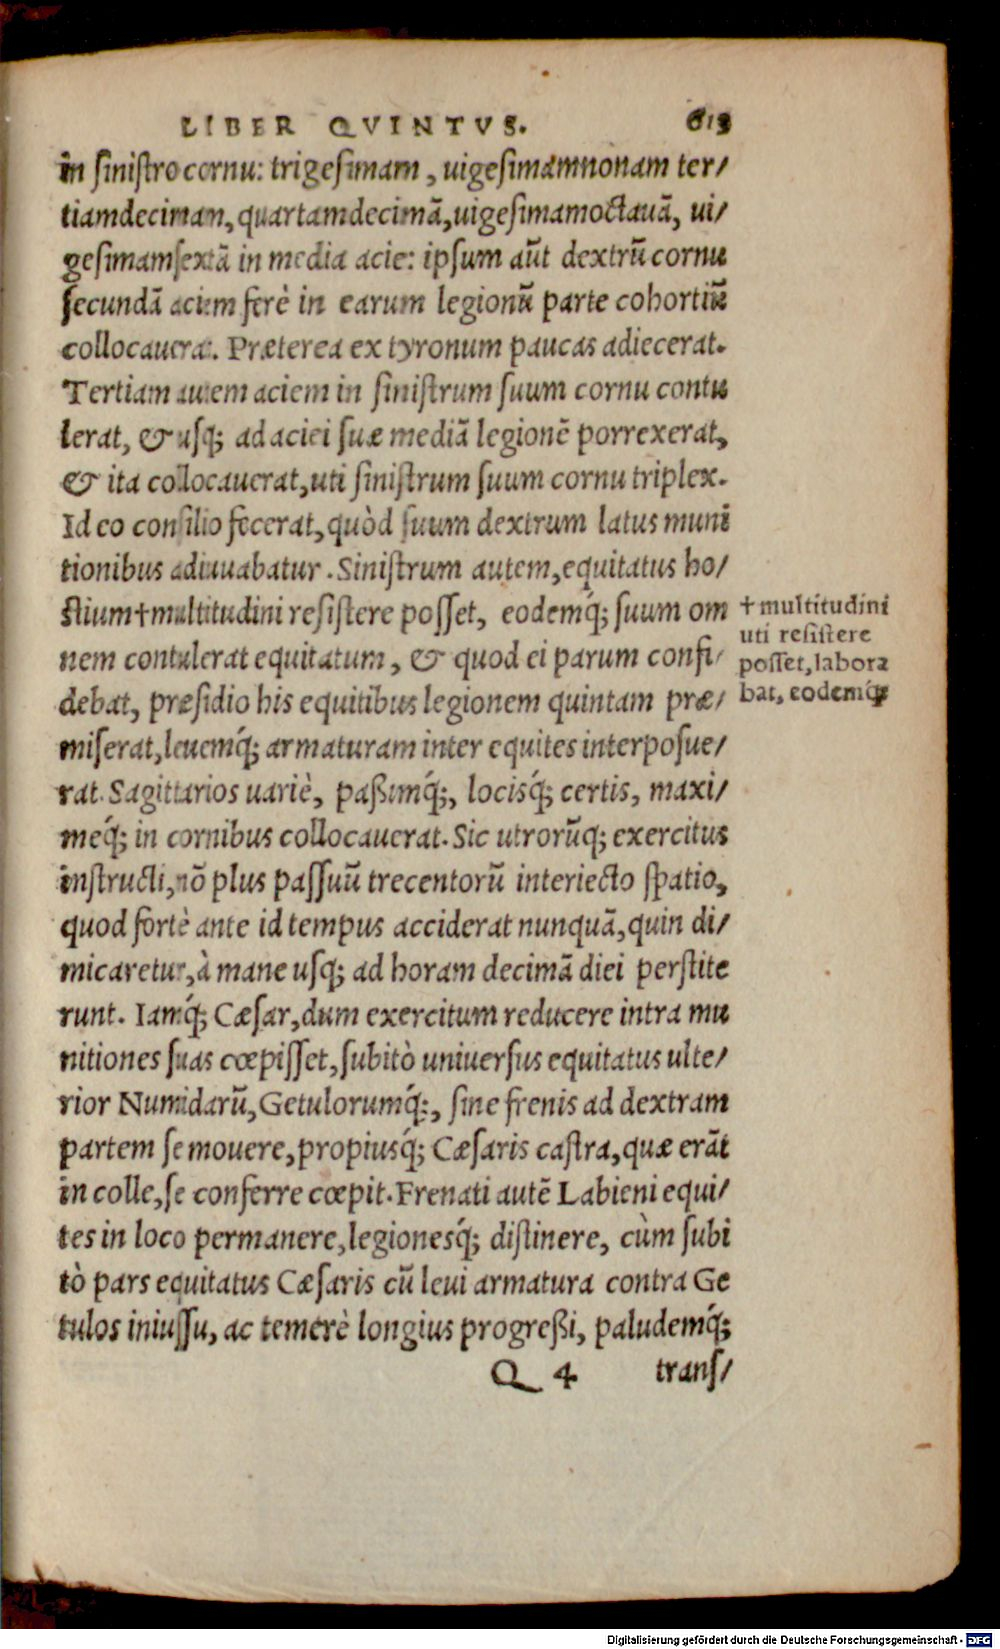 LIBER QVINTVS. 613
in sinistro cornu: trigesimam, uigesimamnonam ter/
tiamdeciman, quartamdecimā, uigesimamoctauā, ui/
gesimamsextā in media acie: ipsum aūt dextrū cornu
secundā aciem ferè in earum legionū parte cohortiū
collocauerat. Præterea ex tyronum paucas adiecerat.
Tertiam autem aciem in sinistrum suum cornu contu
lerat, & usq; ad aciei suæ mediā legionē porrexerat,
& ita collocauerat, uti sinistrum suum cornu triplex.
Id eo consilio fecerat, quòd suum dextrum latus muni
tionibus adiuuabatur. Sinistrum autem, equitatus ho/
stium†multitudini resistere posset, eodemq́; suum om
nem contulerat equitatum, & quod ei parum confi/
debat, præsidio his equitibus legionem quintam præ/
miserat, leuemq́; armaturam inter equites interposue/
rat. Sagittarios uariè, paßimq́;, locisq́; certis, maxi/
meq́; in cornibus collocauerat. Sic utrorūq; exercitus
instructi, nō plus passuū trecentorū interiecto spatio,
quod fortè ante id tempus acciderat nunquā, quin di/
micaretur, à mane usq; ad horam decimā diei perstite
runt. Iamq́; Cæsar, dum exercitum reducere intra mu
nitiones suas cœpisset, subitò uniuersus equitatus ulte/
rior Numidarū, Getulorumq́;, sine frenis ad dextram
partem se mouere, propiusq́; Cæsaris castra, quæ erāt
in colle, se conferre cœpit. Frenati autē Labieni equi/
tes in loco permanere, legionesq́; distinere, cùm subi
tò pars equitatus Cæsaris cū leui armatura contra Ge
tulos iniussu, ac temerè longius progreßi, paludemq́;
Q 4 trans/
†multitudini
uti resistere
posset, labora
bat, eodemq́;
Digitalisierung gefördert durch die Deutsche Forschungsgemeinschaft - DFG